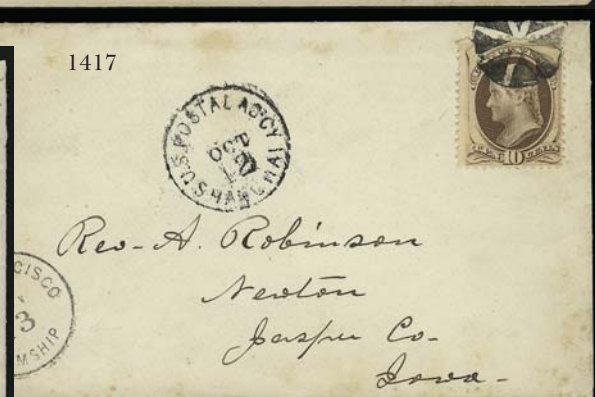 1417
U.S. POSTAL AG'CY
SHANGHAI
OCT
TEN 10 CENTS
Rev- A. Robinson
Newton
Jasper Co-
Iowa-
CISCO
3
MSHIP